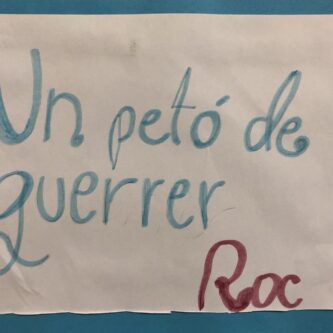 Un petó de
guerrer
Roc